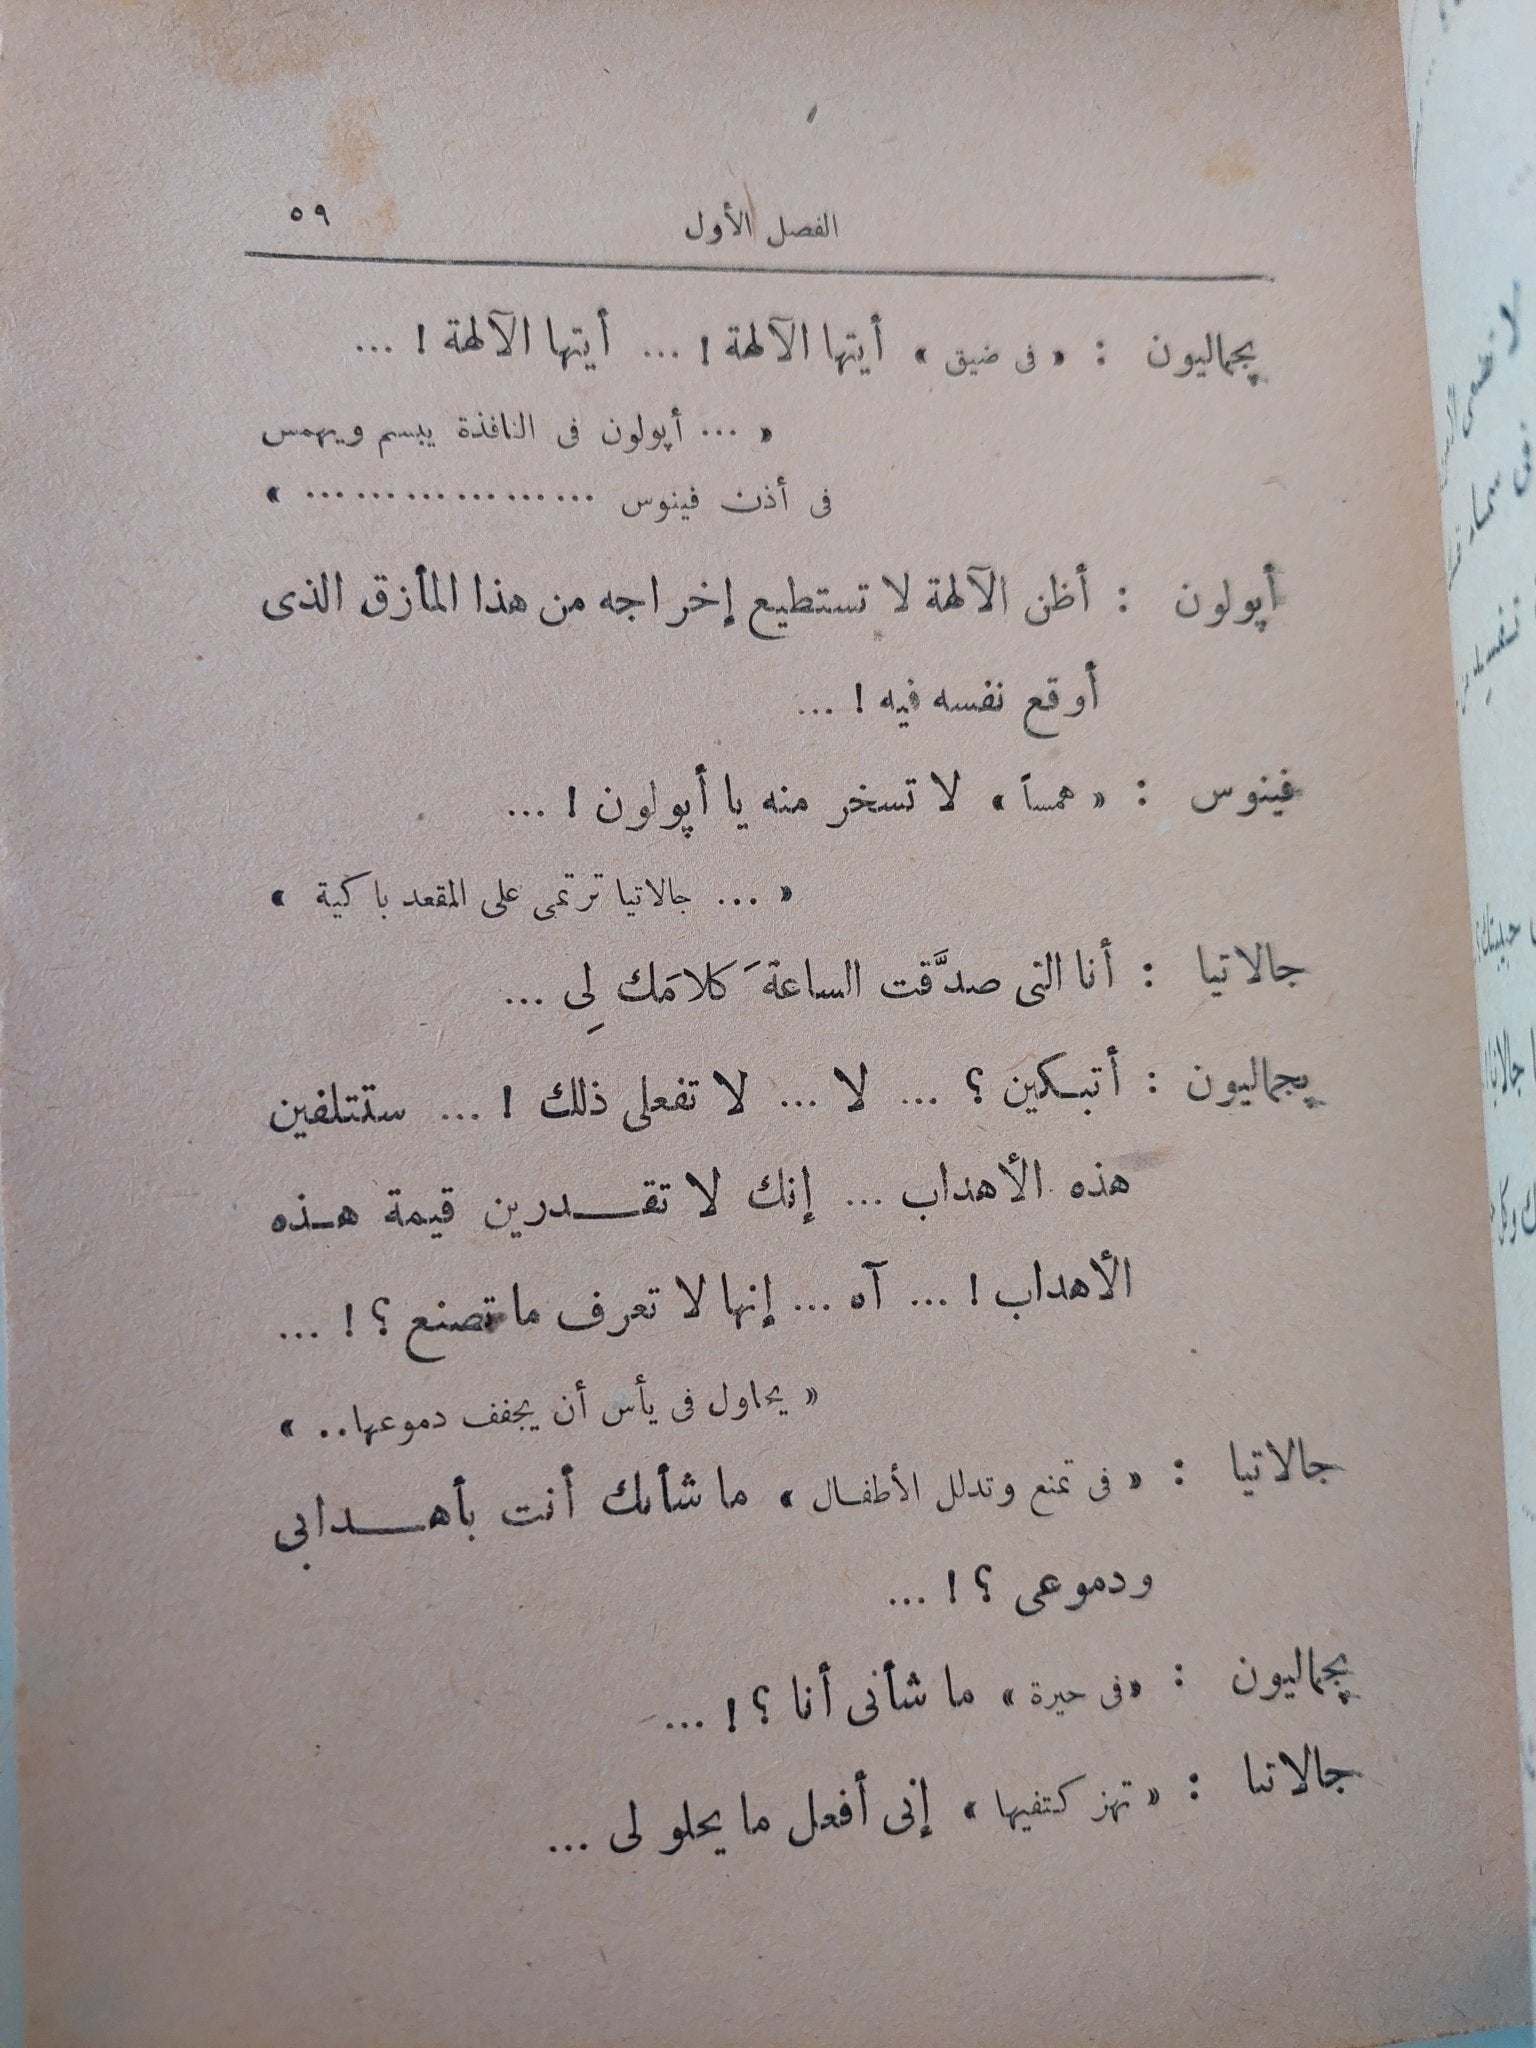 الفصل الأول ٥٩
پجماليون : « فى ضيق » أيتها الآلهة ! ... أيتها الآلهة ! ...
« ... أپولون فى النافذة يبسم ويهمس
فى أذن فينوس .................. »
أپولون : أظن الآلهة لا تستطيع إخراجه من هذا المأزق الذى
أوقع نفسه فيه ! ...
فينوس : « همساً » لا تسخر منه يا أپولون ! ...
« ... جالاتيا ترتمى على المقعد باكية »
جالاتيا : أنا التى صدَّقت الساعةَ كلامَك لِى ...
پجماليون : أتبكين ؟ ... لا ... لا تفعلى ذلك ! ... ستتلفين
هذه الأهداب ... إنك لا تقـــدرين قيمة هـذه
الأهداب ! ... آه ... إنها لا تعرف ما تصنع ؟ ! ...
« يحاول فى يأس أن يجفف دموعها.. »
جالاتيا : « فى تمنع وتدلل الأطفـال » ما شأنك أنت بأهـــدابى
ودموعى ؟ ! ...
پجماليون : « فى حيرة » ما شأنى أنا ؟ ! ...
جالاتيا : « تهز كتفيها » إنى أفعل ما يحلو لى ...